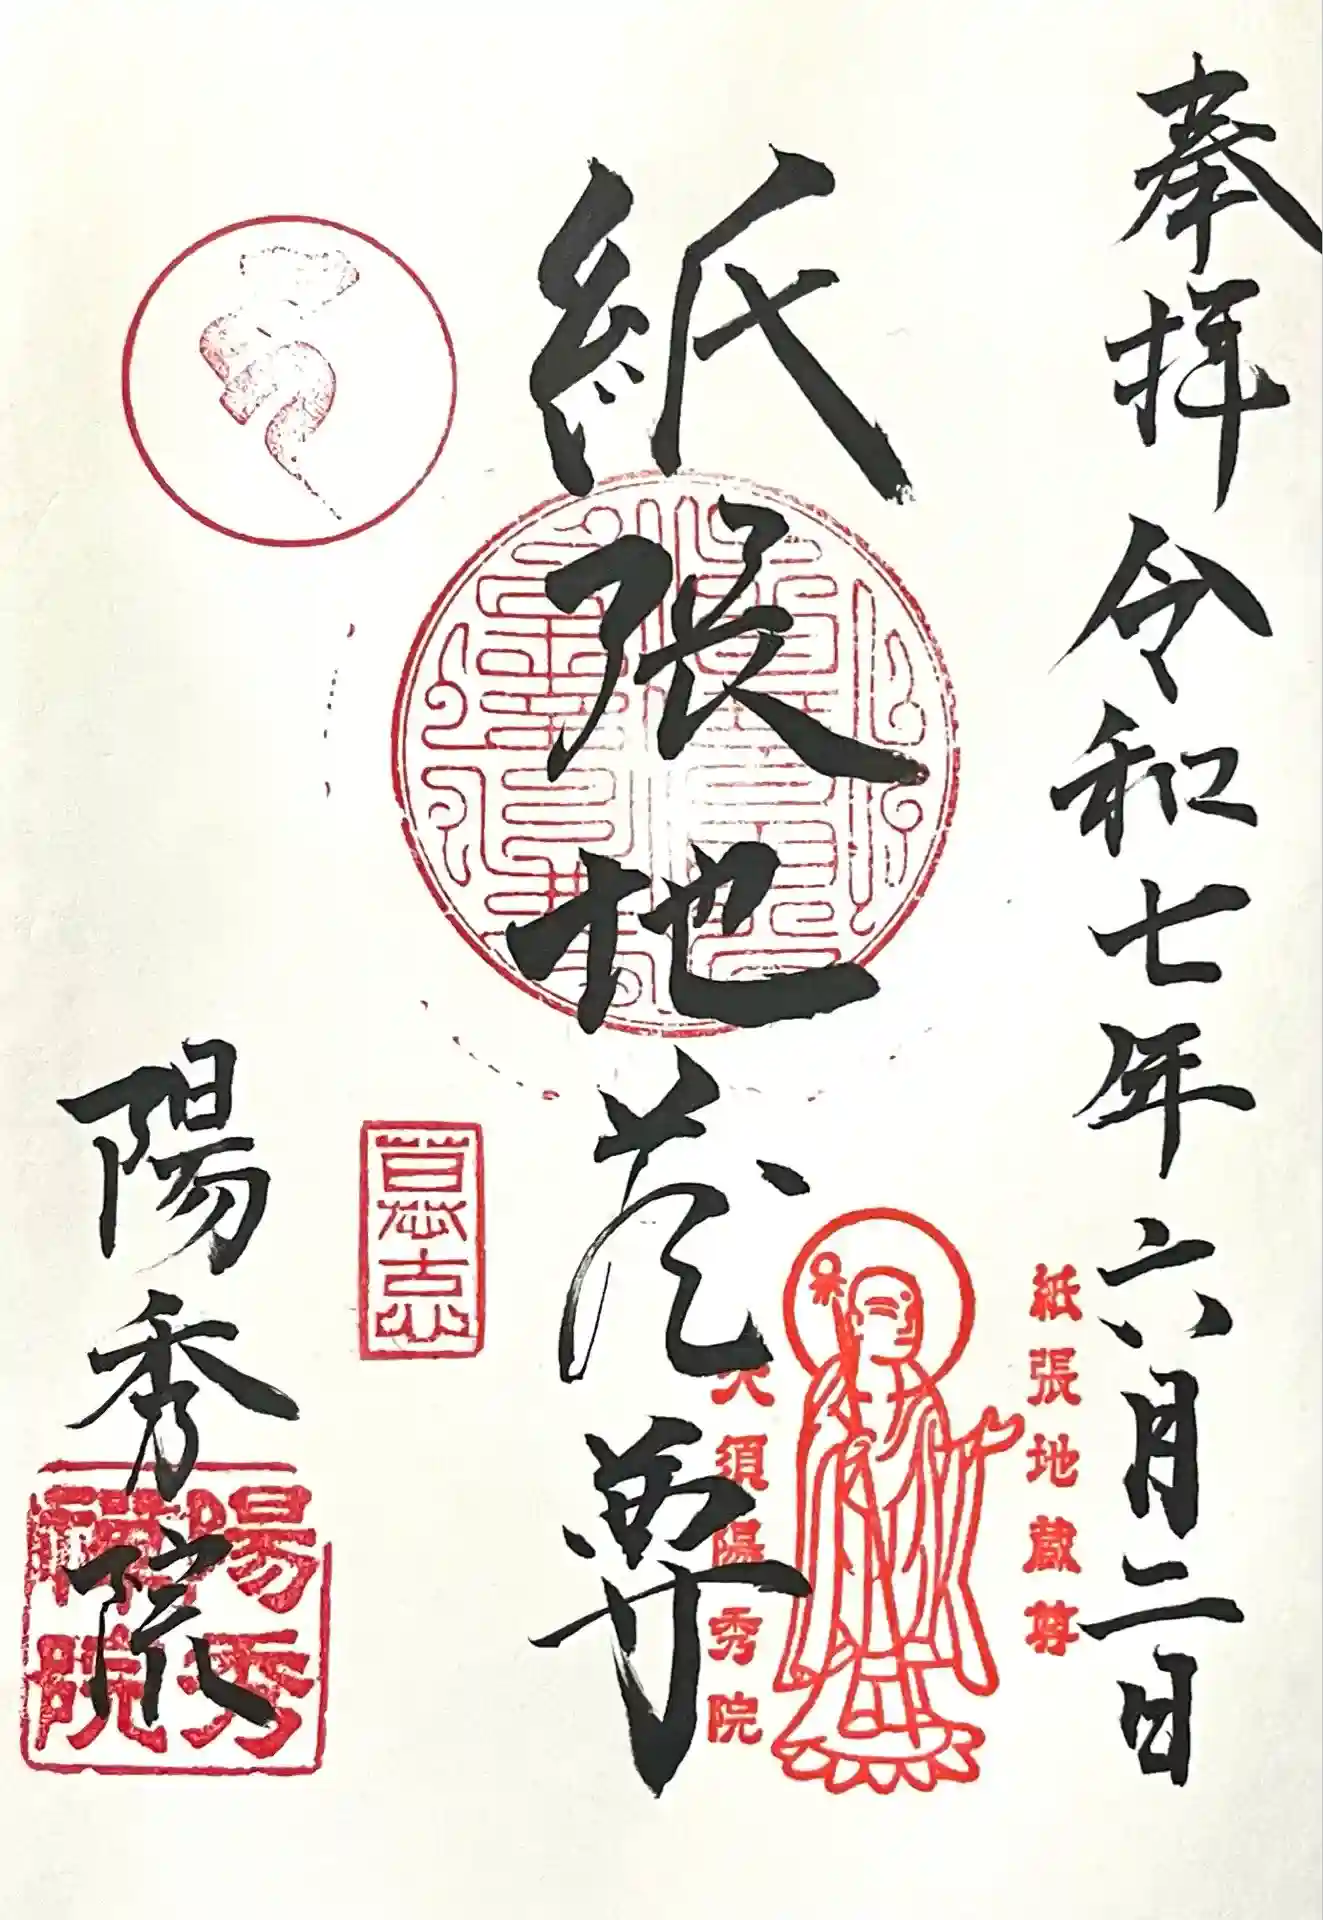 奉拝 令和七年 六月二日
紙張地蔵尊
陽秀院
紙張地蔵尊
大須陽秀院